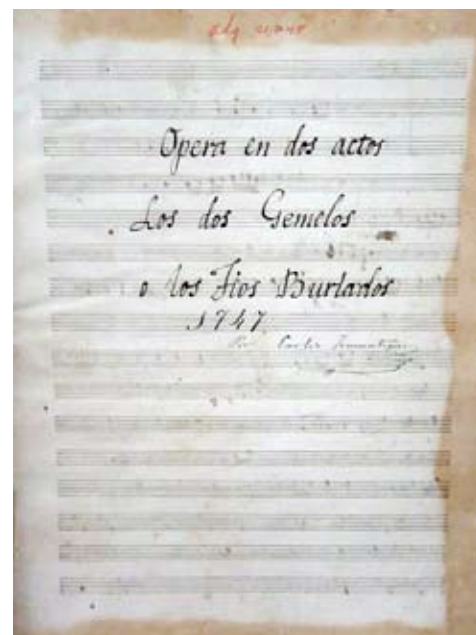 Opera en dos actos
Los dos Gemelos
o los Tios Burlados
1747
Por Carlos